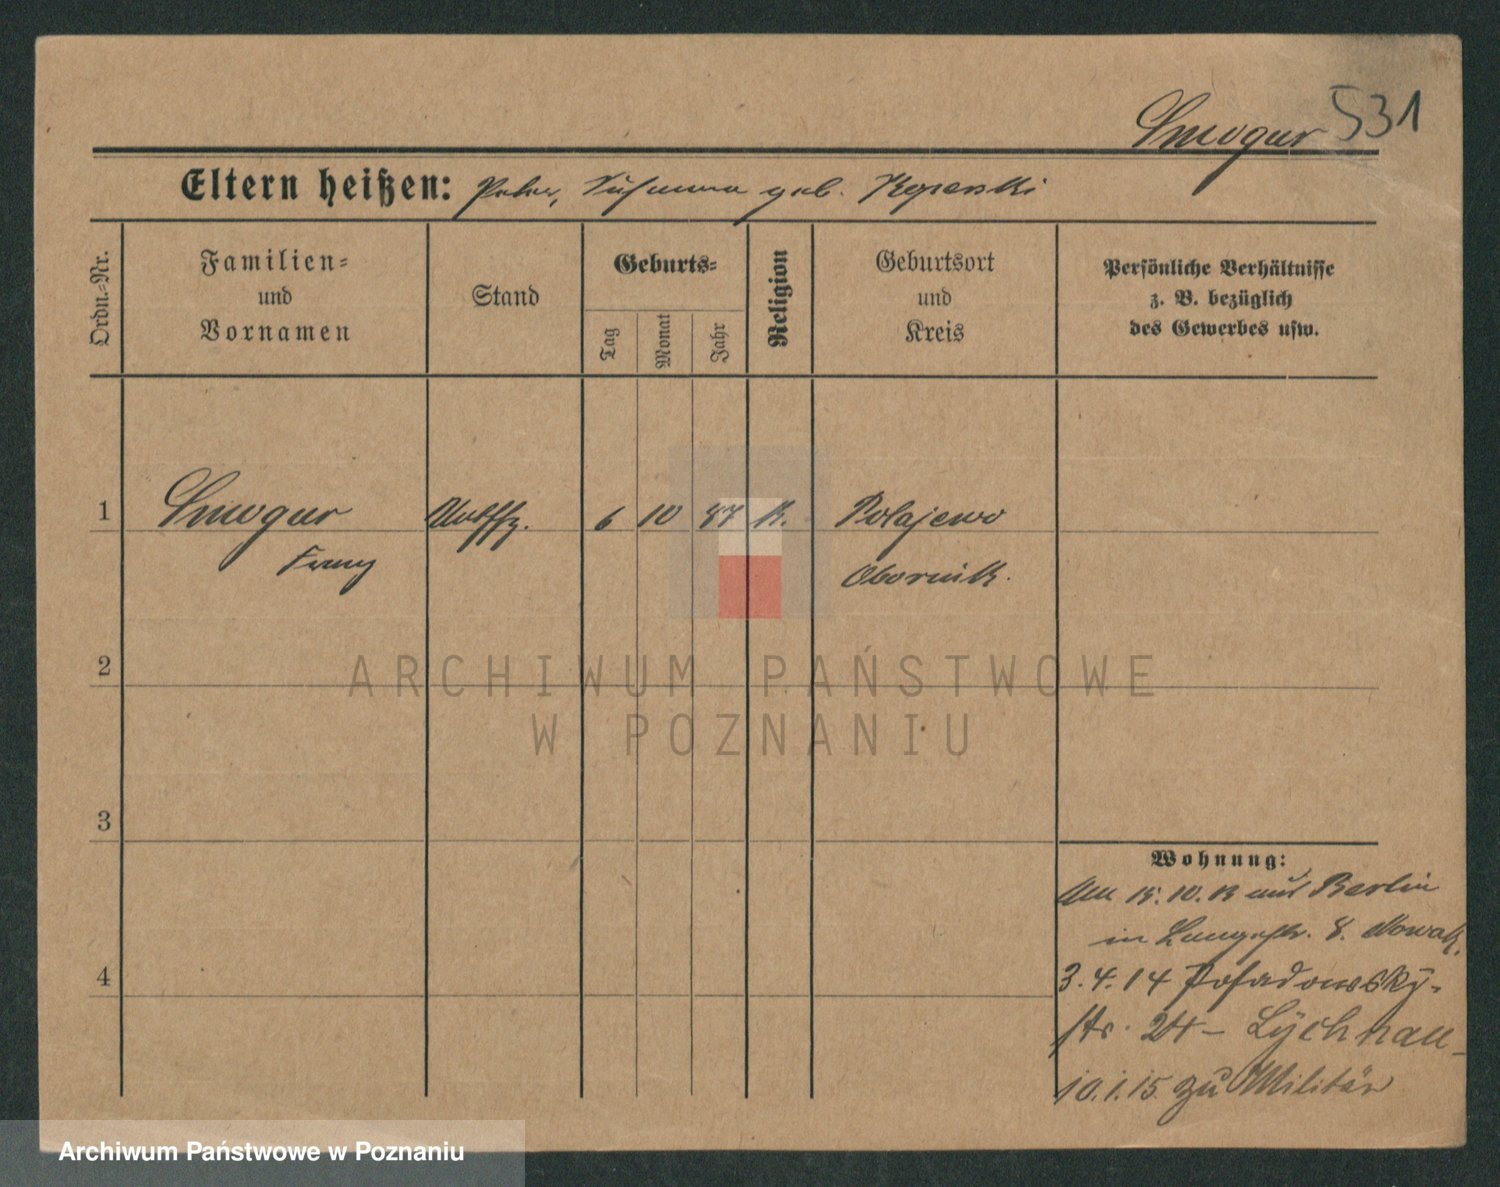 Smogur 531
Eltern heißen: Peter, Susanna geb.
Ordn.-Nr.
Familien-
und
Vornamen
Stand
Geburts-
Tag
Monat
Jahr
Religion
Geburtsort
und
Kreis
Persönliche Verhältnisse
z. B. bezüglich
des Gewerbes usw.
1 Smogur 6 10 87 K. Polajewo
Franz Obornik.
2
ARCHIWUM PAŃSTWOWE
W POZNANIU
3
Wohnung:
Am 15.10.13 aus Berlin
in Langestr. 8. Nowak.
4
3.4.14 Posadowsky-
str. 24 - Lychnau -
10.1.15 zu Militär
Archiwum Państwowe w Poznaniu